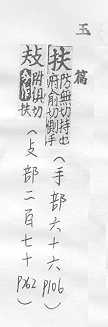 玉篇
扶 防無切持也府俞切側手（手部六十六 P106）
𢻳 附俱切今作扶（攴部二百七十 P262）